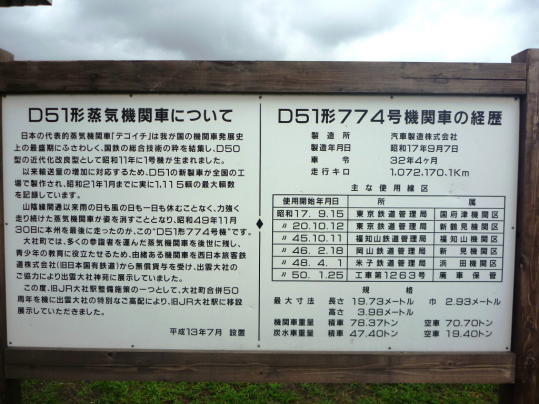 D51形蒸気機関車について
日本の代表的蒸気機関車「デゴイチ」は我が国の機関車発展史
上の最盛期にふさわしく、国鉄の総合技術の粋を結集し、D50
型の近代化改良型として昭和11年に1号機が生まれました。
以来輸送量の増加に対応するため、D51の新製車が全国の工
場で製作され、昭和21年1月までに実に1,115輌の最大輌数
を記録しています。
山陰線開通以来雨の日も風の日も一日も休むことなく、力強く
走り続けた蒸気機関車が姿を消すこととなり、昭和49年11月
30日に本州を最後に走ったのが、この“D51形774号機”です。
大社町では、多くの参詣者を運んだ蒸気機関車を後世に残し、
青少年の教育に役立たせるため、由緒ある機関車を西日本旅客鉄
道株式会社(旧日本国有鉄道)から無償貸与を受け、出雲大社のご
協力により出雲大社神苑に展示していました。
この度、旧JR大社駅整備施策の一つとして、大社町合併50
周年を機に出雲大社の特別なご高配により、旧JR大社駅に移設
展示していただきました。
平成13年7月 設置
D51形774号機関車の経歴
製造所 汽車製造株式会社
製造年月日 昭和17年9月7日
車令 32年4ヶ月
走行キロ 1,072,170.1Km
主な使用線区
使用開始年月日 所属
昭和17.9.15 東京鉄道管理局 国府津機関区
〃20.10.12 東京鉄道管理局 新鶴見機関区
〃45.10.11 福知山鉄道管理局 福知山機関区
〃46.2.18 岡山鉄道管理局 新見機関区
〃48.4.1 米子鉄道管理局 浜田機関区
〃50.1.25 工車第1263号 廃車保管
規格
最大寸法 長さ 19.73メートル 巾 2.93メートル
高さ 3.98メートル
機関車重量 積車 78.37トン 空車 70.70トン
炭水車重量 積車 47.40トン 空車 19.40トン